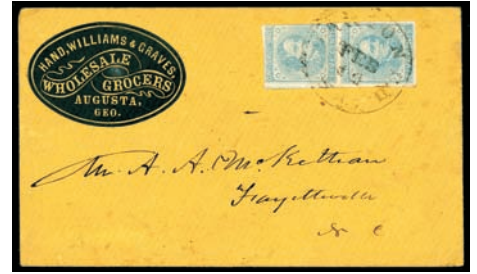 HAND, WILLIAMS & GRAVES,
WHOLESALE
GROCERS
AUGUSTA,
GEO.
FEB
Mr. A. A. McKethan
Fayetteville
N C